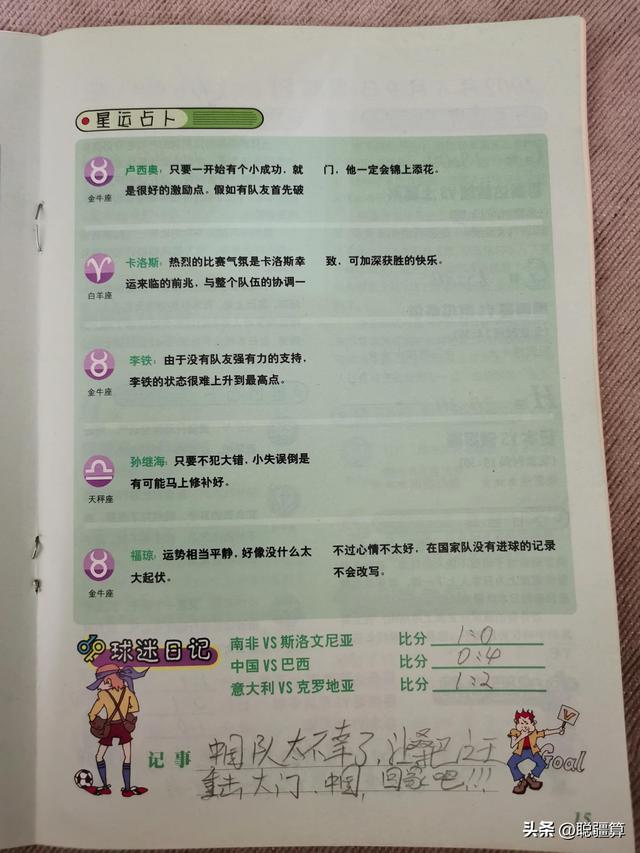 星运占卜
卢西奥：只要一开始有个小成功，就
是很好的激励点。假如有队友首先破
门，他一定会锦上添花。
金牛座
卡洛斯：热烈的比赛气氛是卡洛斯幸
运来临的前兆，与整个队伍的协调一
致，可加深获胜的快乐。
白羊座
李铁：由于没有队友强有力的支持，
李铁的状态很难上升到最高点。
金牛座
孙继海：只要不犯大错，小失误倒是
有可能马上修补好。
天秤座
福琼：运势相当平静，好像没什么太
大起伏。
不过心情不太好，在国家队没有进球的记录
不会改写。
金牛座
球迷日记
南非 VS 斯洛文尼亚 比分 1:0
中国 VS 巴西 比分 0:4
意大利 VS 克罗地亚 比分 1:2
记事 中国队太不幸了，
重击大门，中国，回家吧!!!
Goal
15
头条 @聪疆算